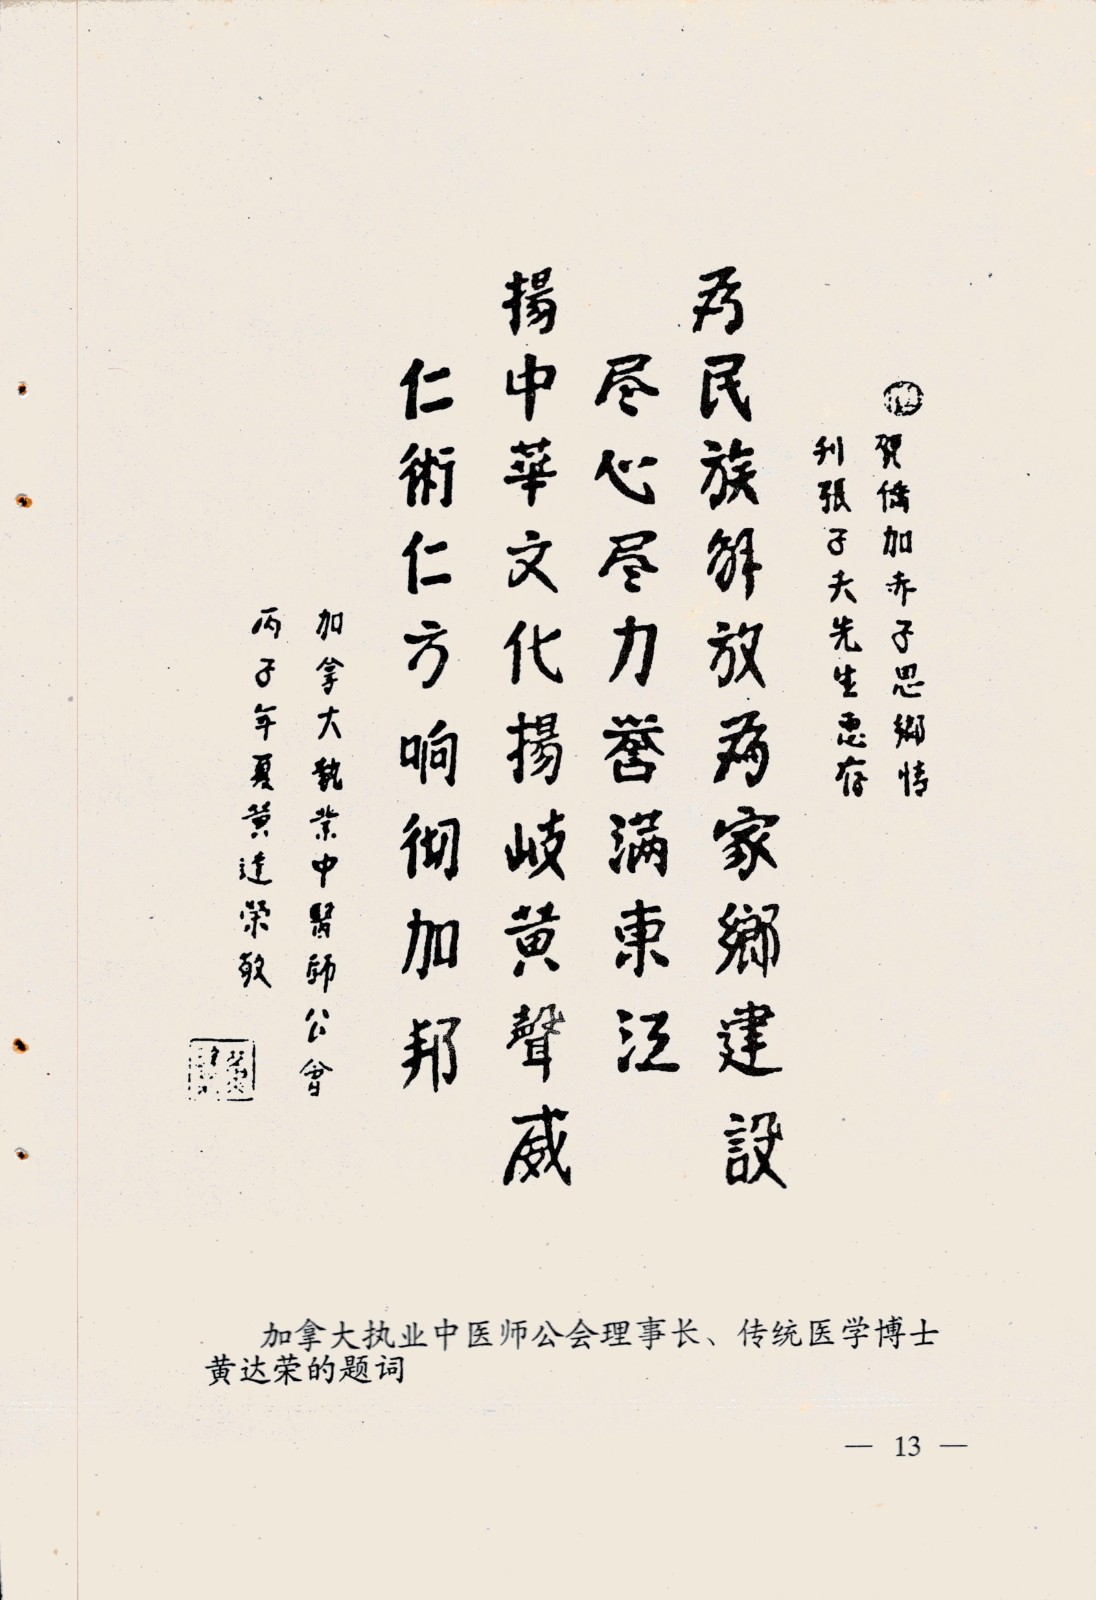 贺僑加赤子思鄉情
刋張子夫先生惠存
为民族解放为家鄉建設
尽心尽力誉满東江
揚中華文化揚岐黄聲威
仁術仁方响彻加邦
加拿大執業中醫師公會
丙子年夏黄達榮敬
加拿大执业中医师公会理事长、传统医学博士
黄达荣的题词
— 13 —